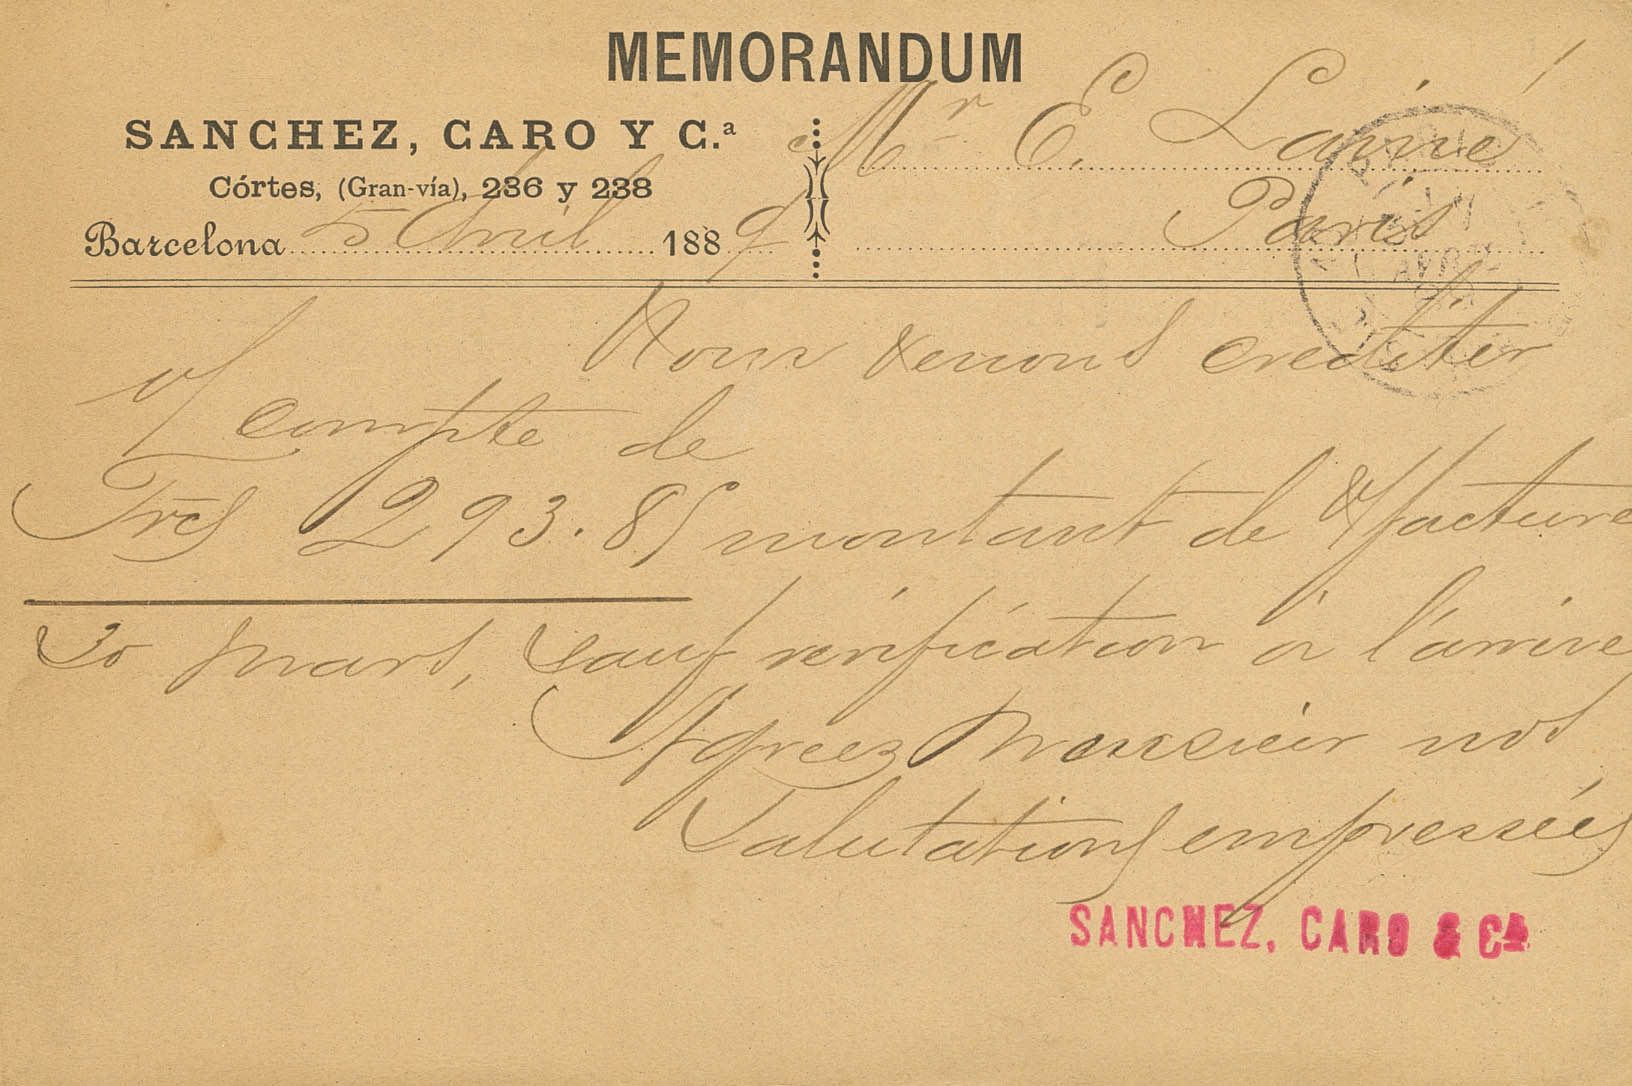 MEMORANDUM
SANCHEZ, CARO Y C.ª
Córtes, (Gran-vía), 236 y 238
Barcelona 5 Avril 1889
Mr E.
Paris
Nous venons créditer
v/ compte de
Frcs 293.85 montant de v/facture
30 mars, sauf vérification à l'arrivée
Agréez Monsieur nos
Salutations empressées
SANCHEZ, CARO & Cª